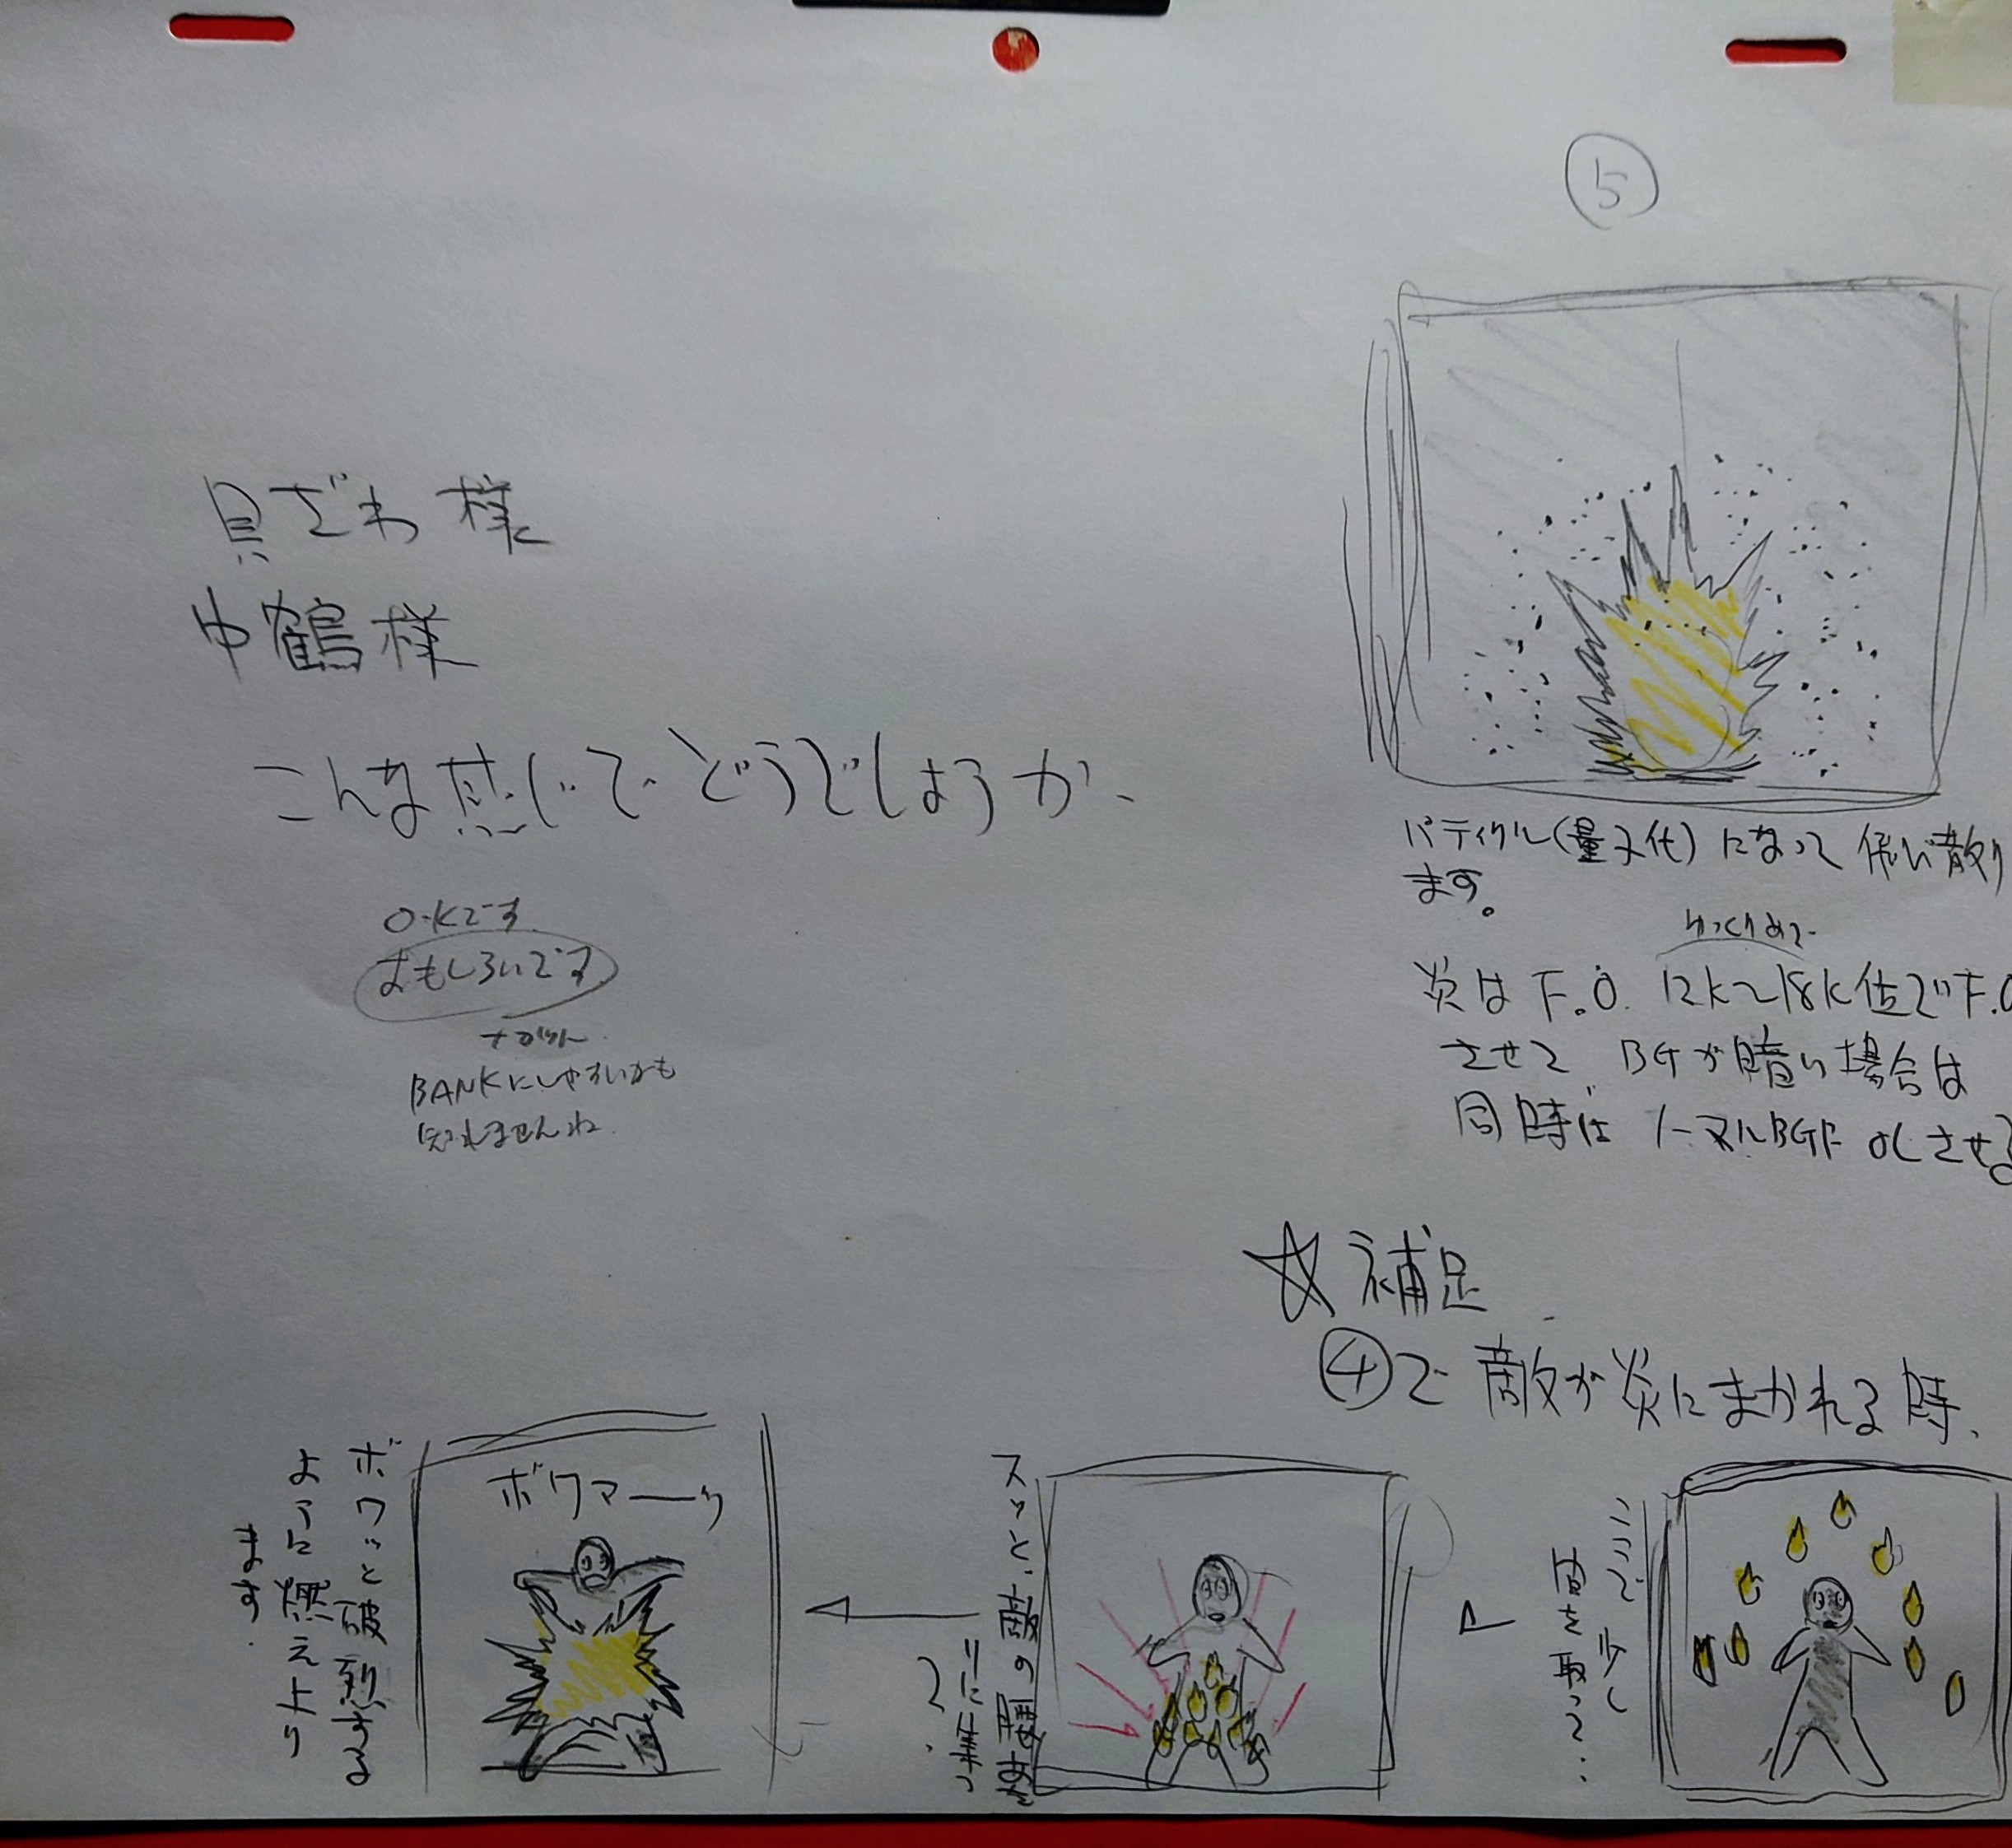 貝ざわ様
中鶴様
こんな感じでどうでしょうか、
O.Kです
おもしろいです
BANKにしやすいかも
知れませんね
⑤
パティクル(量子化)になって飛び散り
ます。
ゆっくりめで
炎はF.O. 12K〜18K位でF.O
させて BGが暗い場合は
同時にノーマルBGに OLさせる
☆補足
④で敵が炎にまかれる時、
ここで少し
間を取って‥
スッと、敵の
ボワァーッ
ボワッと破裂する
ように燃え上り
ます.